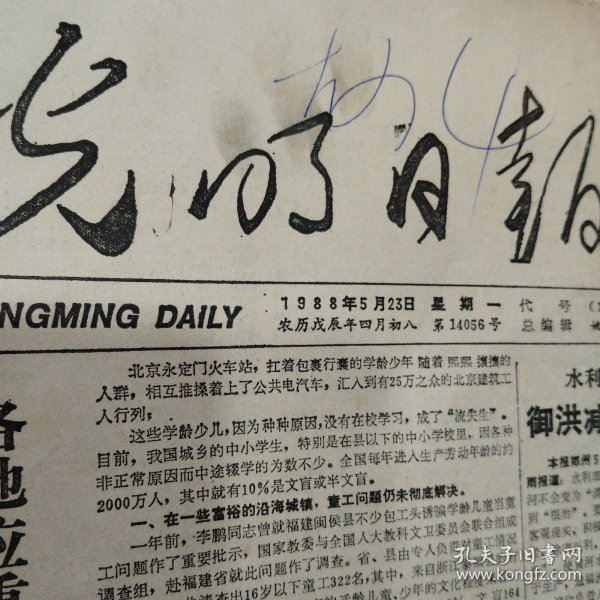 光明日报
NGMING DAILY
1988年5月23日 星期一 代号
农历戊辰年四月初八 第14056号 总编辑
各地应重
北京永定门火车站，扛着包裹行囊的学龄少年随着熙熙攘攘的
人群，相互推搡着上了公共电汽车，汇入到有25万之众的北京建筑工
人行列；
这些学龄少儿，因为种种原因，没有在校学习，成了“流失生”。
目前，我国城乡的中小学生，特别是在县以下的中小学校里，因各种
非正常原因而中途辍学的为数不少。全国每年进入生产劳动年龄的约
2000万人，其中就有10%是文盲或半文盲。
一、在一些富裕的沿海城镇，童工问题仍未彻底解决。
一年前，李鹏同志曾就福建闽侯县不少包工头诱骗学龄儿童当童
工问题作了重要批示，国家教委与全国人大教科文卫委员会联合组成
调查组，赴福建省就此问题作了调查。省、县由专人负责对童工情况
查出16岁以下童工322名，其中，来自浙
水利
御洪减
本报郑州5
雨报道：水利
河不会变为“
到“根治”。
孔夫子旧书网
www.kongfz.com